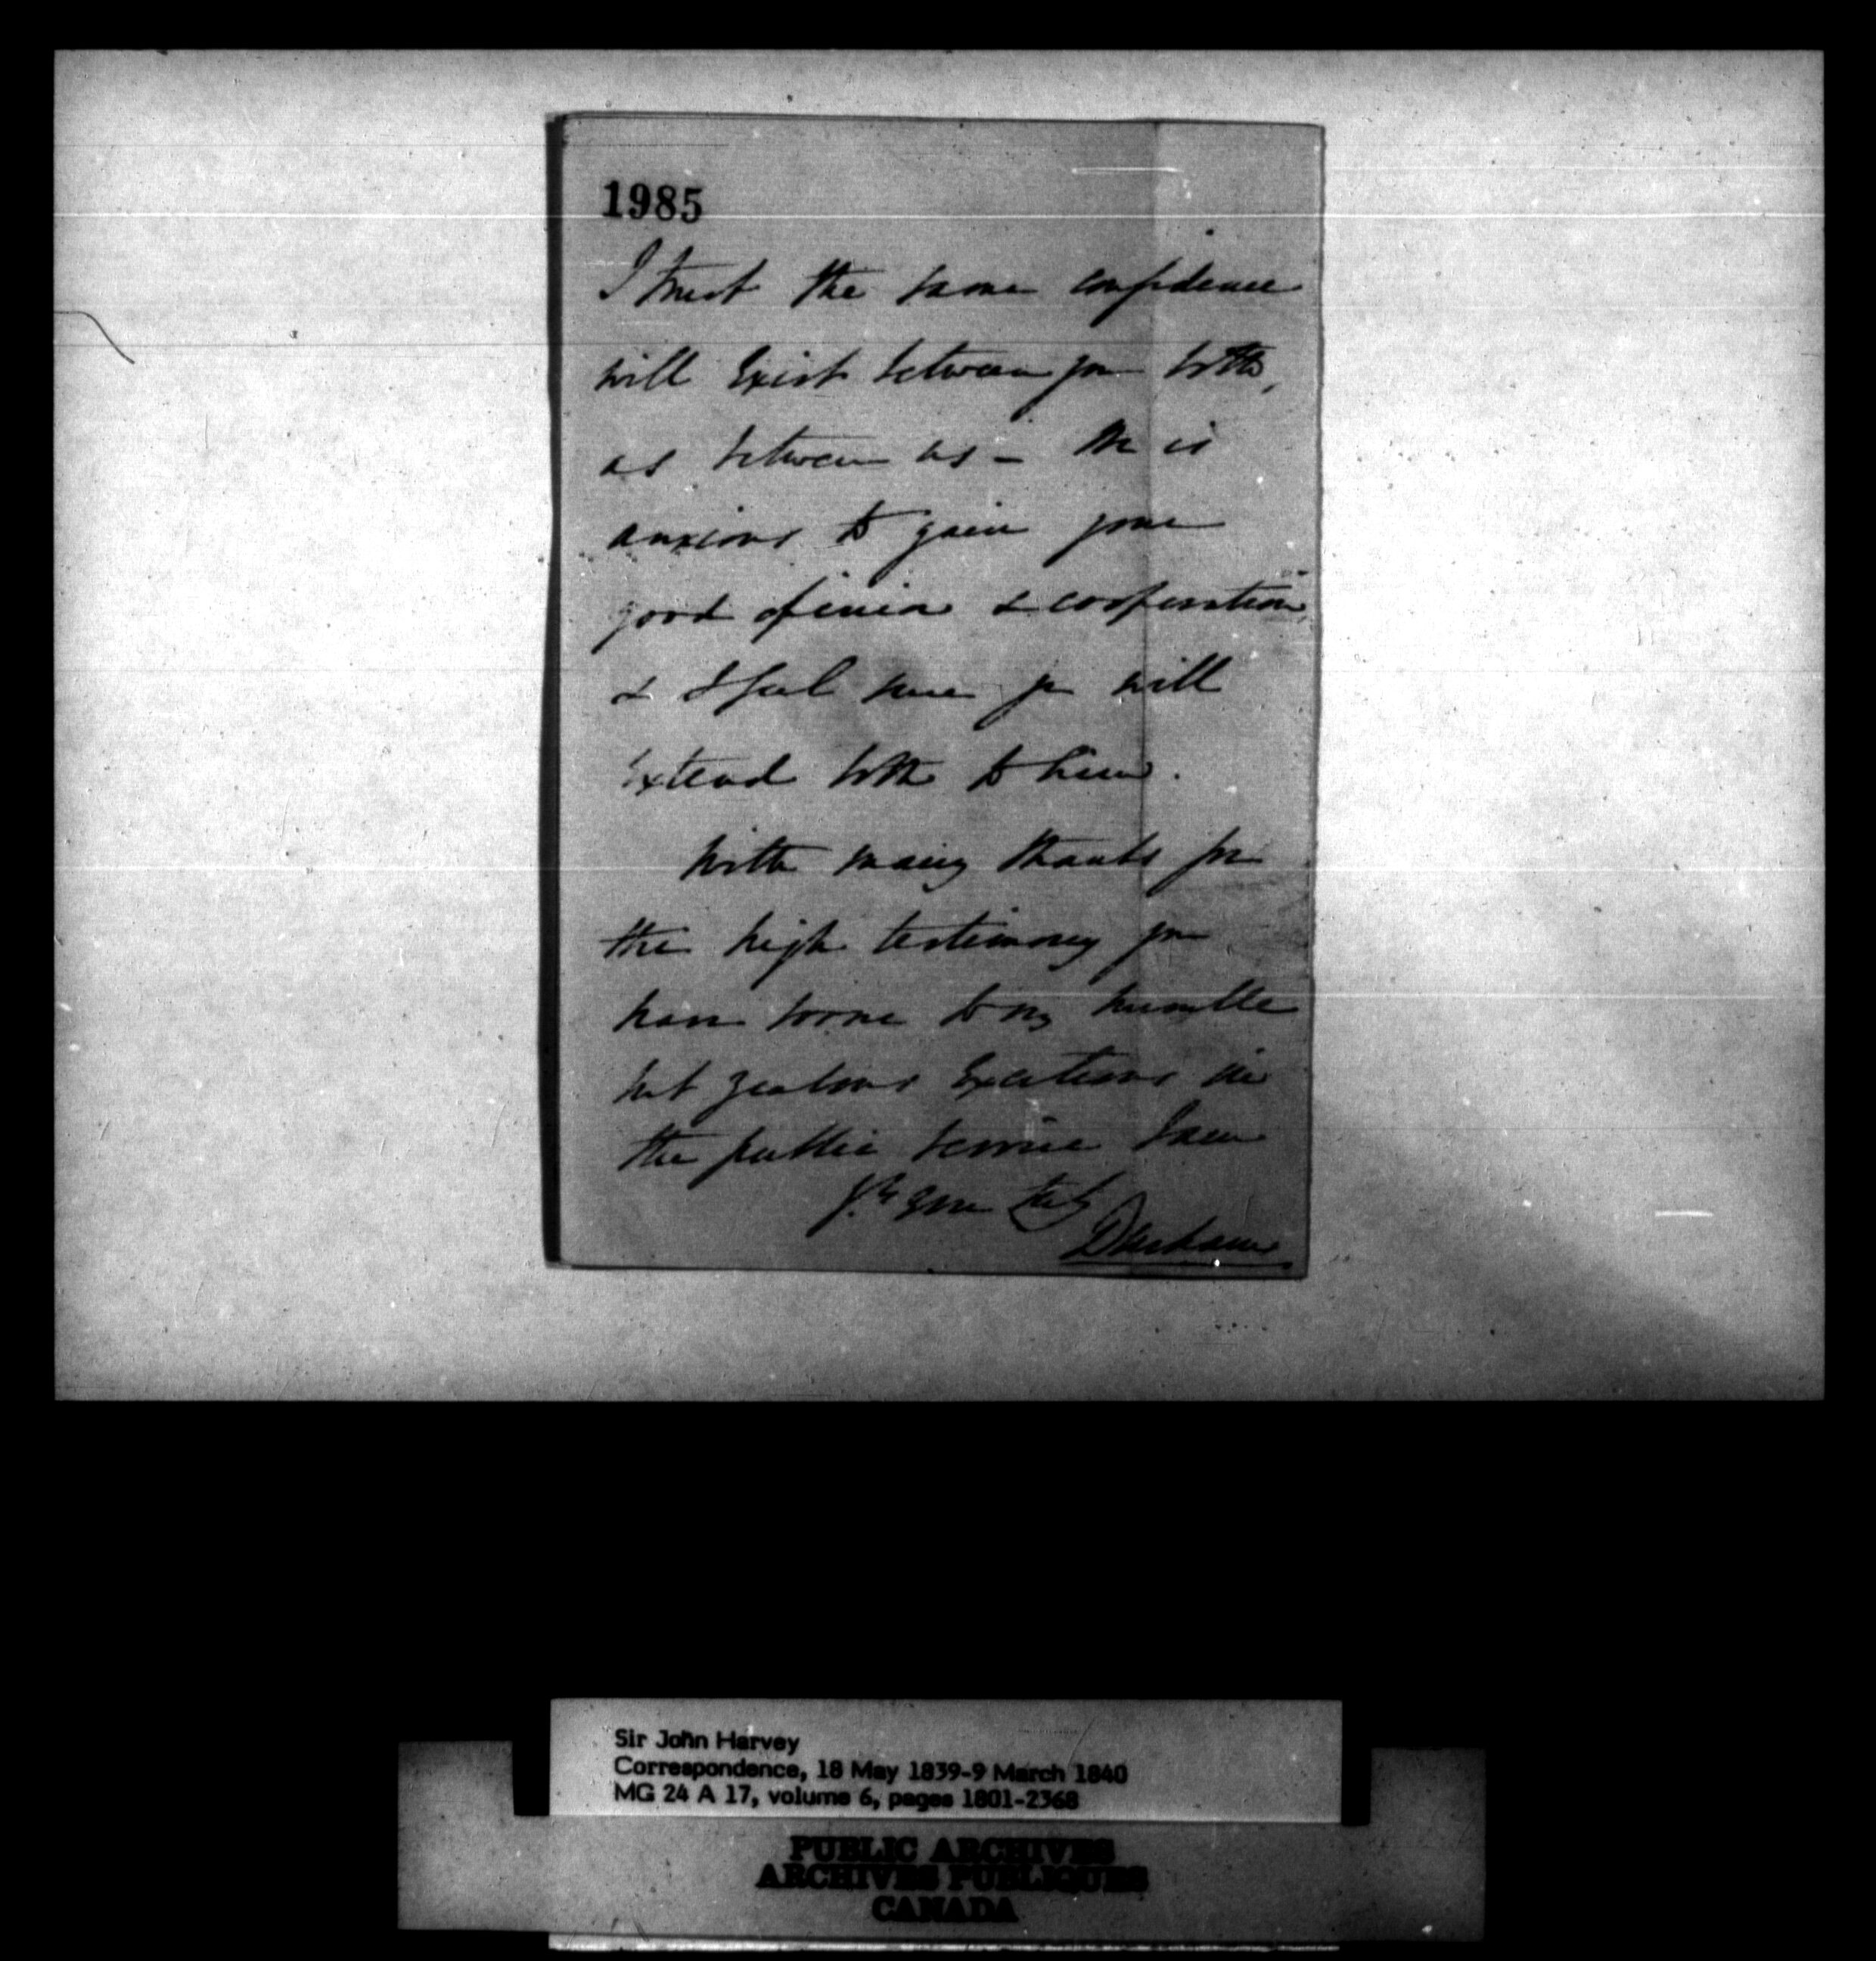 1985
I trust the same confidence
will exist between you both,
as between us – He is
anxious to gain your
good opinion & cooperation,
& I feel sure you will
extend both to him.
With many thanks for
the high testimony you
have borne to my humble
but zealous exertions in
the public service I am
Durham
Sir John Harvey
Correspondence, 18 May 1839-9 March 1840
MG 24 A 17, volume 6, pages 1801-2368
PUBLIC ARCHIVES
ARCHIVES PUBLIQUES
CANADA